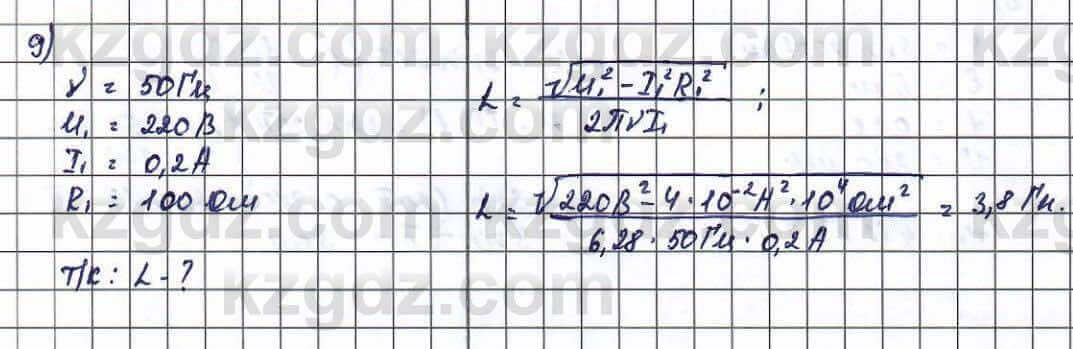 9)
ν = 50 Гц
U₁ = 220 В
I₁ = 0,2 А
R₁ = 100 Ом
Т/к: L - ?
L = √(U₁² - I₁²R₁²) / 2πνI₁ ;
L = √(220В² - 4 · 10⁻²А² · 10⁴ Ом²) / 6,28 · 50Гц · 0,2А = 3,8 Гн.
kzgdz.com kzgdz.com k
kzgdz.com kzgdz.com
kzgdz.com kzgdz.com
kzgdz.com